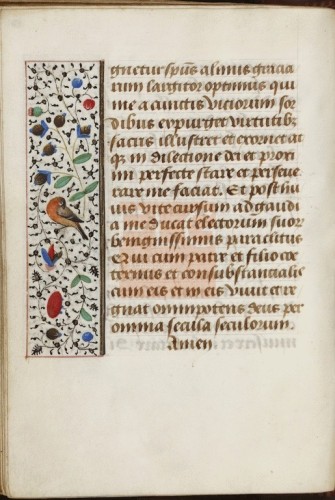 gnetur sp̄us alimis gracia
rum largitor optimus qui
me a cunctis viciorum sor
dibus expurget virtutib;
sacris illustret et exornet at
q; in dilectione dei et proxi
mi perfecte stare et perseve
rare me faciat. Et post hu
ius vite cursum ad gaudi
a me ducat electorum suor
benignissimus paraclitus
Qui cum patre et filio coe
ternus et consubstancialis
cum eis et in eis vivit et re
gnat omnipotens deus per
omnia secula seculorum
Amen